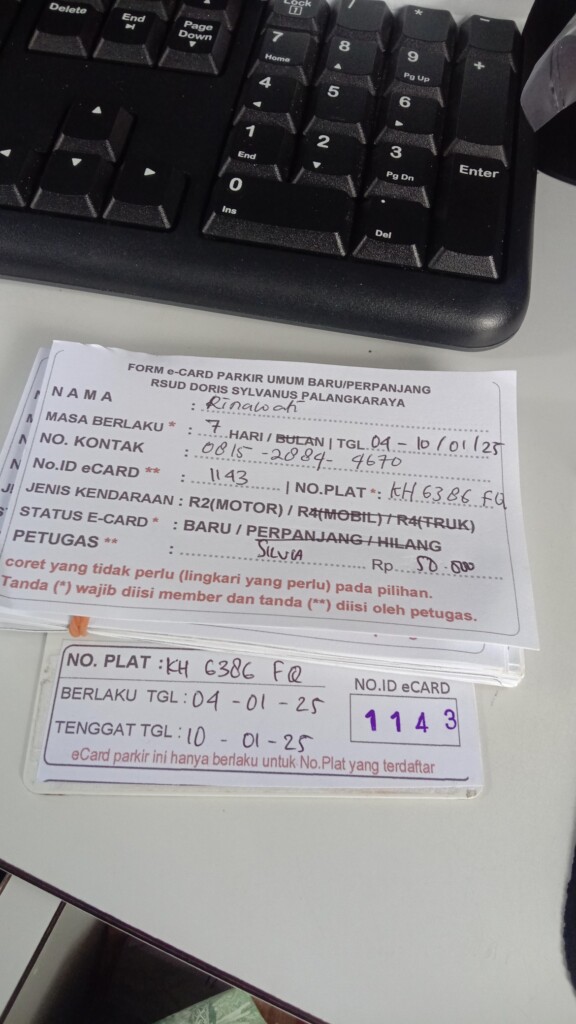 Delete
End
Page
Down
Lock
/
*
-
7
Home
8
9
Pg Up
+
4
5
6
1
End
2
3
Pg Dn
Enter
0
Ins
.
Del
FORM e-CARD PARKIR UMUM BARU/PERPANJANG
RSUD DORIS SYLVANUS PALANGKARAYA
NAMA : Rinawati
MASA BERLAKU * : 7 HARI / BULAN | TGL 04 - 10 / 01 / 25
NO. KONTAK : 0815 - 2884 - 4670
No.ID eCARD ** : 1143 | NO.PLAT *: KH 6386 FQ
JENIS KENDARAAN : R2(MOTOR) / R4(MOBIL) / R4(TRUK)
STATUS E-CARD * : BARU / PERPANJANG / HILANG
PETUGAS ** : SILVIA Rp 50.000
coret yang tidak perlu (lingkari yang perlu) pada pilihan.
Tanda (*) wajib diisi member dan tanda (**) diisi oleh petugas.
NO. PLAT : KH 6386 FQ
BERLAKU TGL : 04 - 01 - 25
TENGGAT TGL : 10 - 01 - 25
NO.ID eCARD
1143
eCard parkir ini hanya berlaku untuk No.Plat yang terdaftar